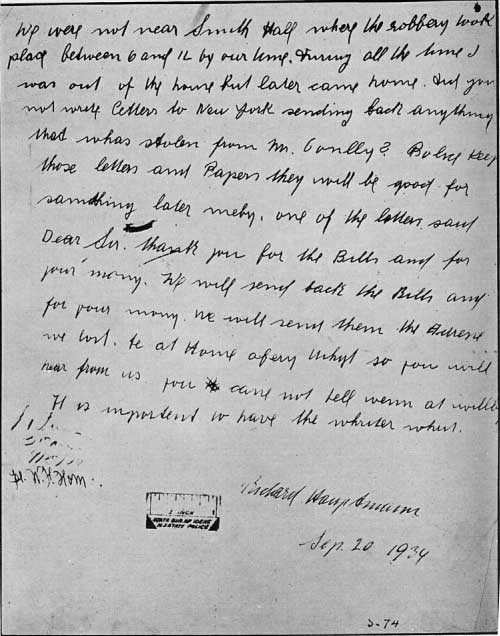 We were not near Smith Hall where the robbery took
place between 6 and 12 by our time. During all the time I
was out of the house but later came home. Did you
not write letters to New York sending back anything
that whas stolen from Mr. Conlly? Police keep
those letters and Papers they will be good for
something later meby. one of the letters said
Dear Sir. thank you for the Bills and for
your mony. We will send back the Bills
for your mony. We will send them the
we lost. Be at Home so you will
hear from us you cane not tell wenn
It is importent to have the whriter whut.
Richard Hauptmann
Sep. 20 1934
1 INCH
STATE BUR. OF IDENT.
N.J. STATE POLICE
S-74